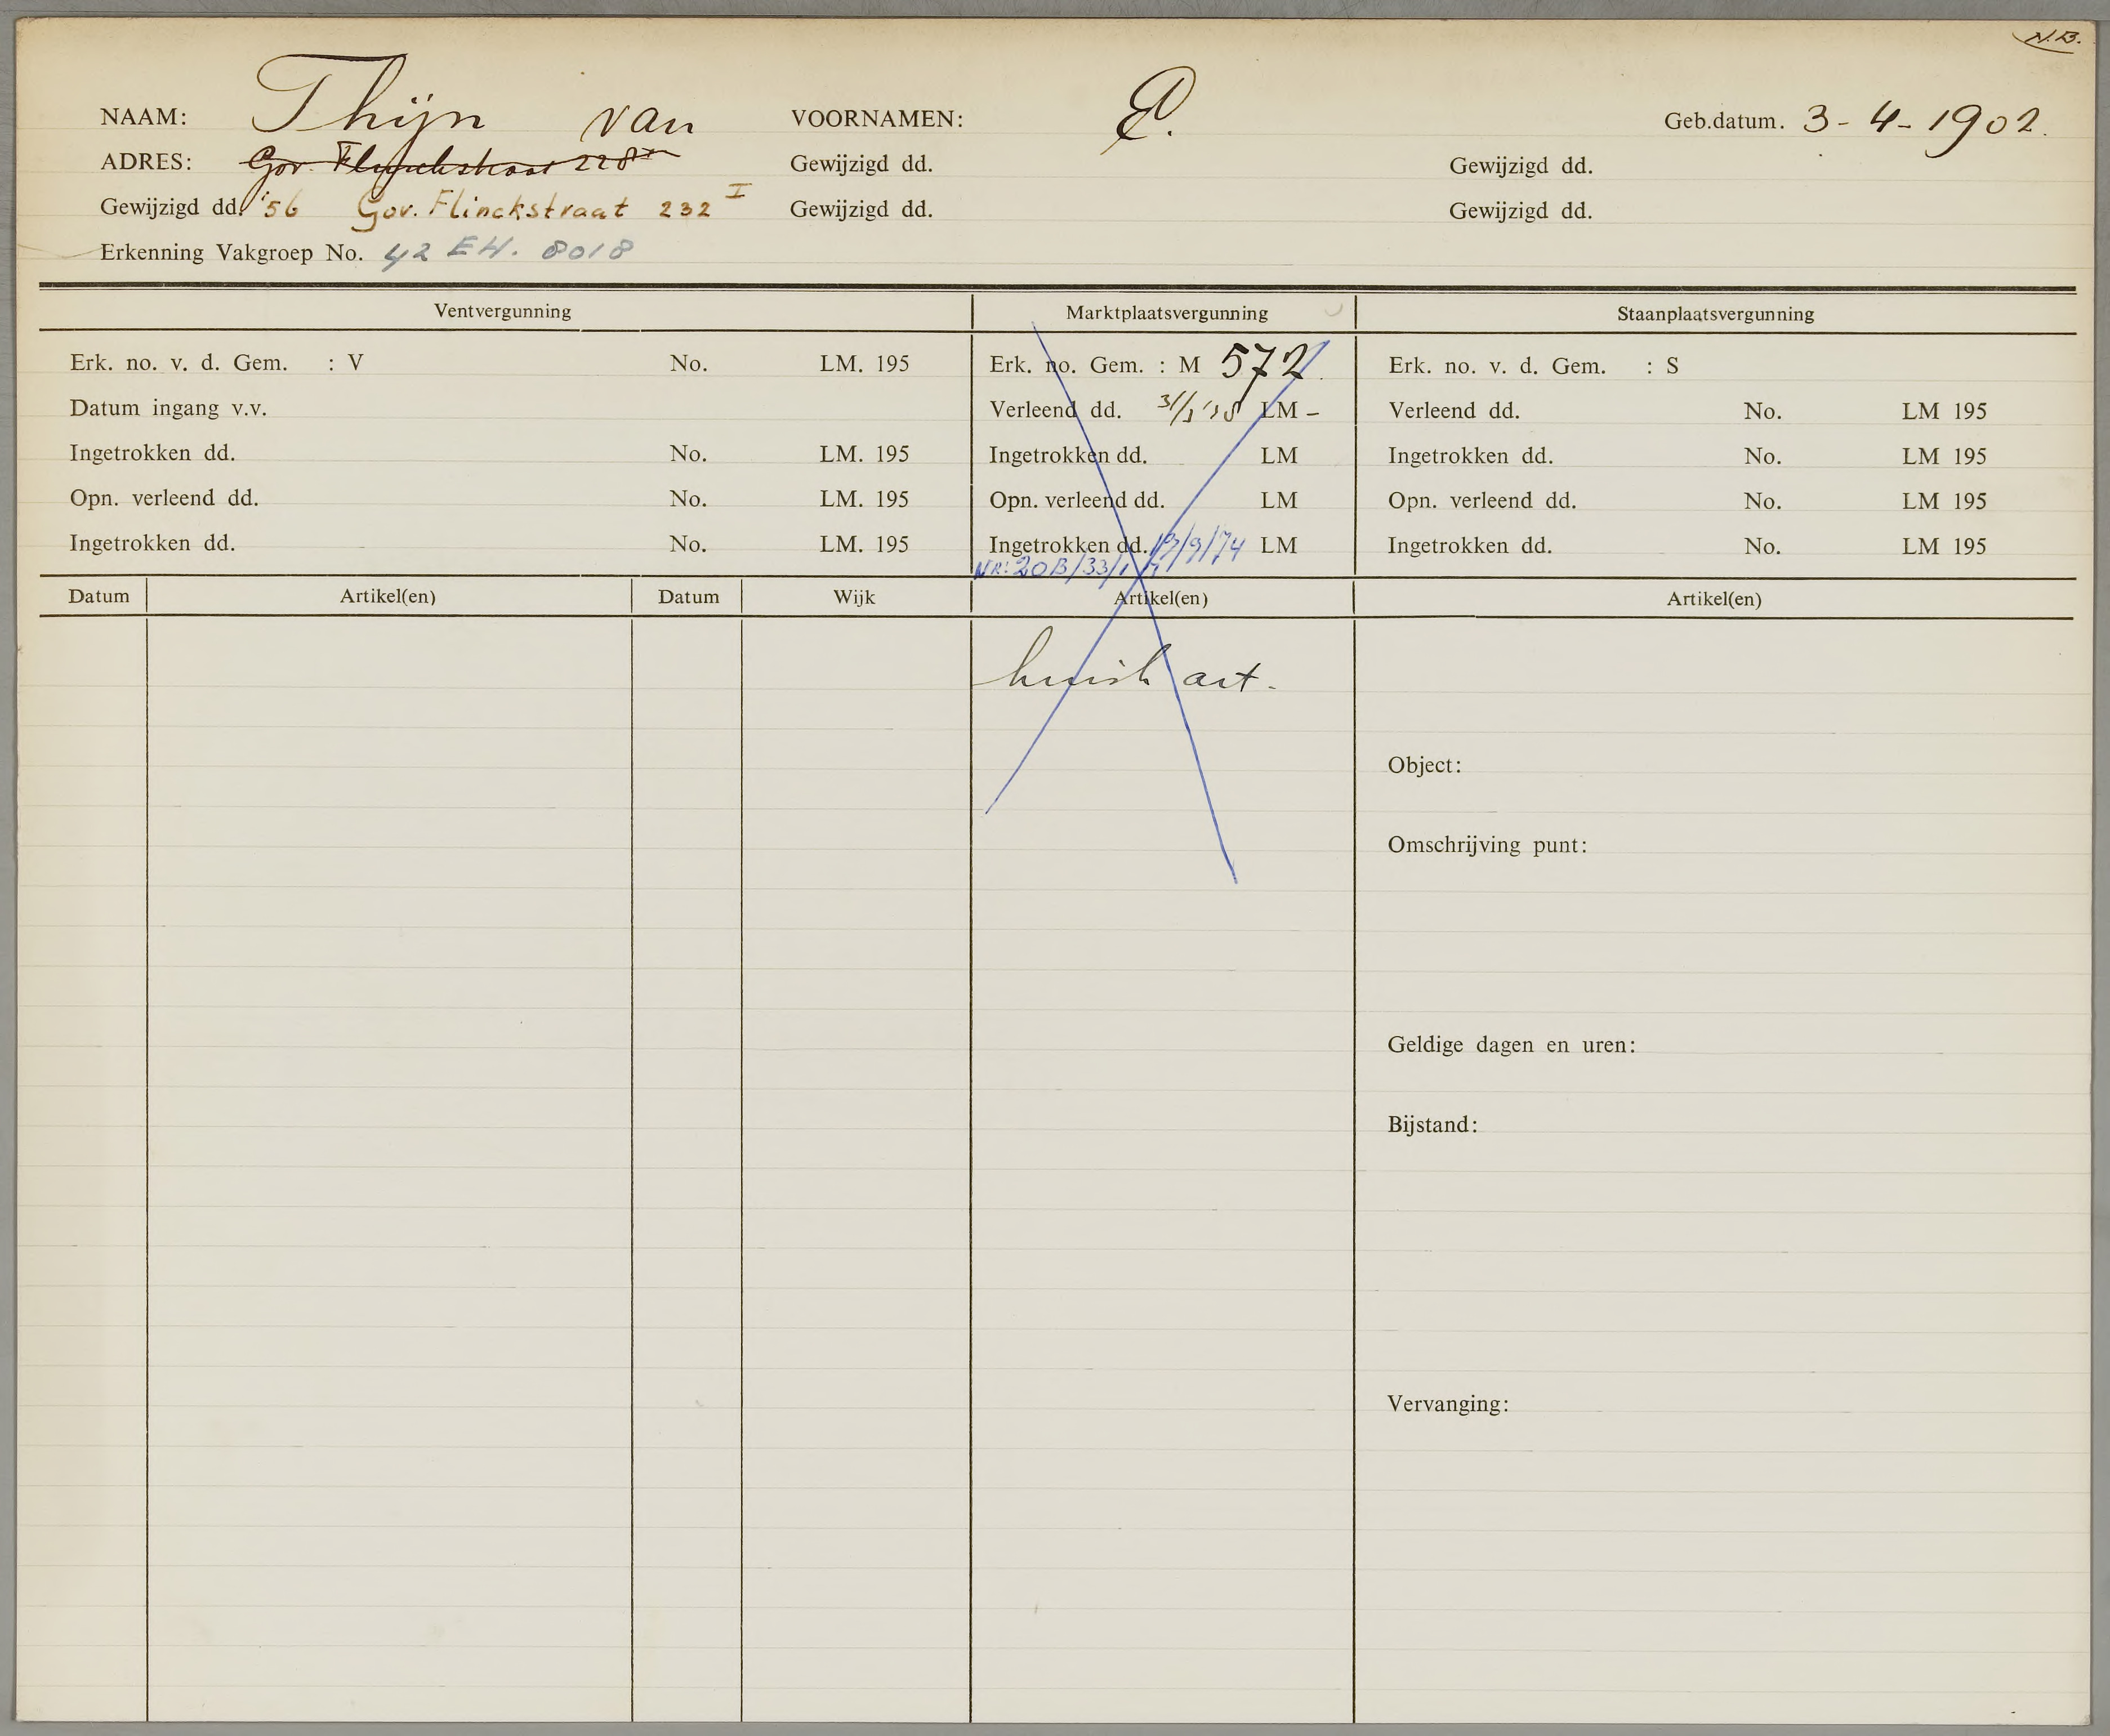 N.B.
NAAM: Thijn van VOORNAMEN: E. Geb.datum. 3-4-1902.
ADRES: Gov. Flinckstraat 228 Gewijzigd dd. Gewijzigd dd.
Gewijzigd dd. '56 Gov. Flinckstraat 232 I Gewijzigd dd. Gewijzigd dd.
Erkenning Vakgroep No. 42 EH. 8018
Ventvergunning Marktplaatsvergunning Staanplaatsvergunning
Erk. no. v. d. Gem. : V No. LM. 195 Erk. no. Gem. : M 572 Erk. no. v. d. Gem. : S
Datum ingang v.v. Verleend dd. LM - Verleend dd. No. LM 195
Ingetrokken dd. No. LM. 195 Ingetrokken dd. LM Ingetrokken dd. No. LM 195
Opn. verleend dd. No. LM. 195 Opn. verleend dd. LM Opn. verleend dd. No. LM 195
Ingetrokken dd. No. LM. 195 Ingetrokken dd. 13/9/74 LM Ingetrokken dd. No. LM 195
NR: 20B/33/1
Datum Artikel(en) Datum Wijk Artikel(en) Artikel(en)
huish art.
Object:
Omschrijving punt:
Geldige dagen en uren:
Bijstand:
Vervanging: